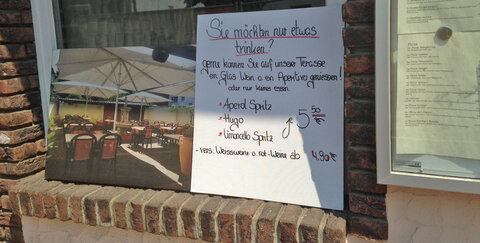 Sie möchten nur etwas
trinken?
gerne können Sie auf unserer Terasse
ein Glas Wein o. ein Aperitivo geniessen!
oder nur kleines essen
* Aperol Spritz
* Hugo
* Limoncello Spritz
je 5 50 €
- vers. Weisswein o. rot-Wein ab 4.90 €